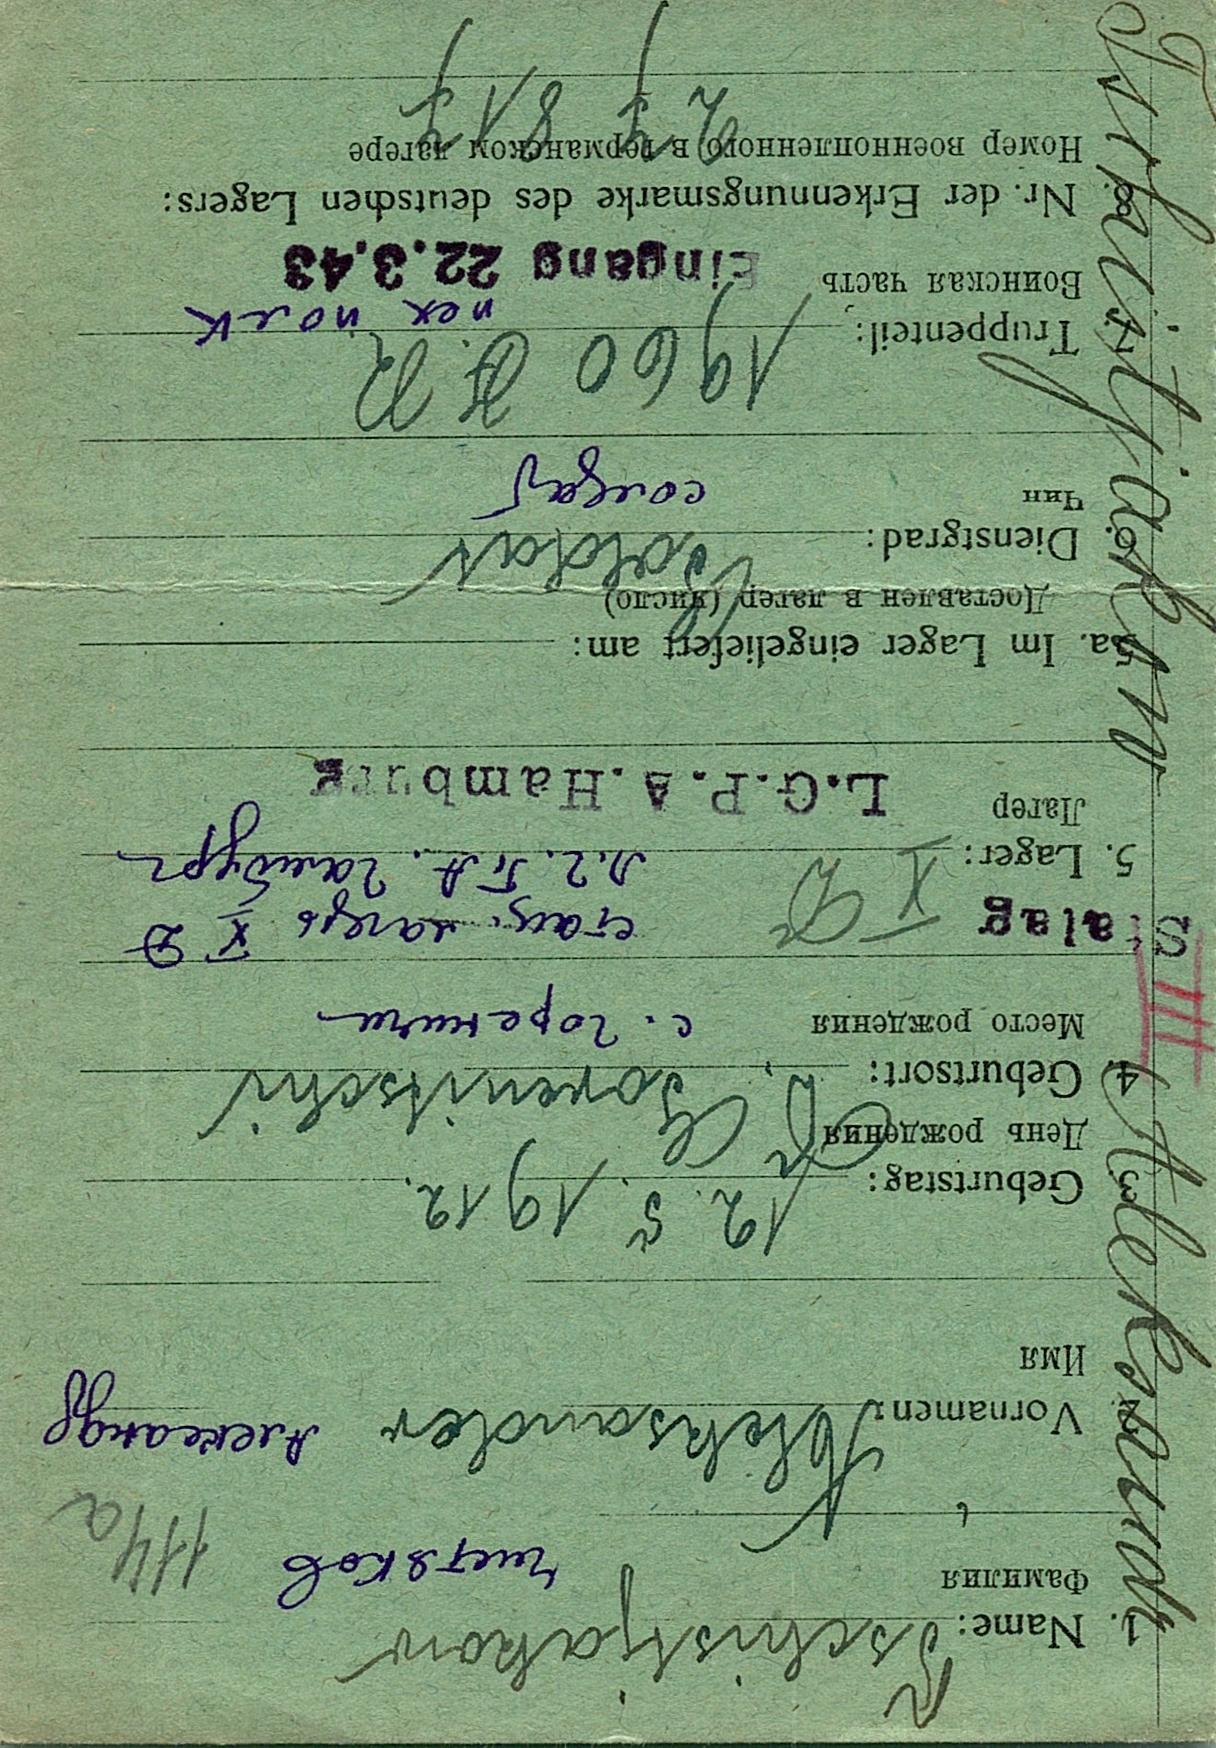 Tschistjakow
1. Name:
Фамилия
Чистяков
114a
Vornamen:
Aleksander
Александр
Имя
12. 5. 1912.
3. Geburtstag:
День рождения
Gorenitschi
4. Geburtsort:
Место рождения
с. Гореничи
Stalag X D
стац. лагерь X Д
5. Lager:
Л.Г.П.А. Гамбург
Лагер
L.G.P.A. Hamburg
5a. Im Lager eingeliefert am:
Доставлен в лагер (число)
Soldat
6. Dienstgrad:
Чин
солдат
1960 J.R.
7. Truppenteil:
пех полк
Воинская часть
Eingang 22.3.43
8. Nr. der Erkennungsmarke des deutschen Lagers:
Номер военнопленного в германском лагере
Tschistjakow Aleksandr
III